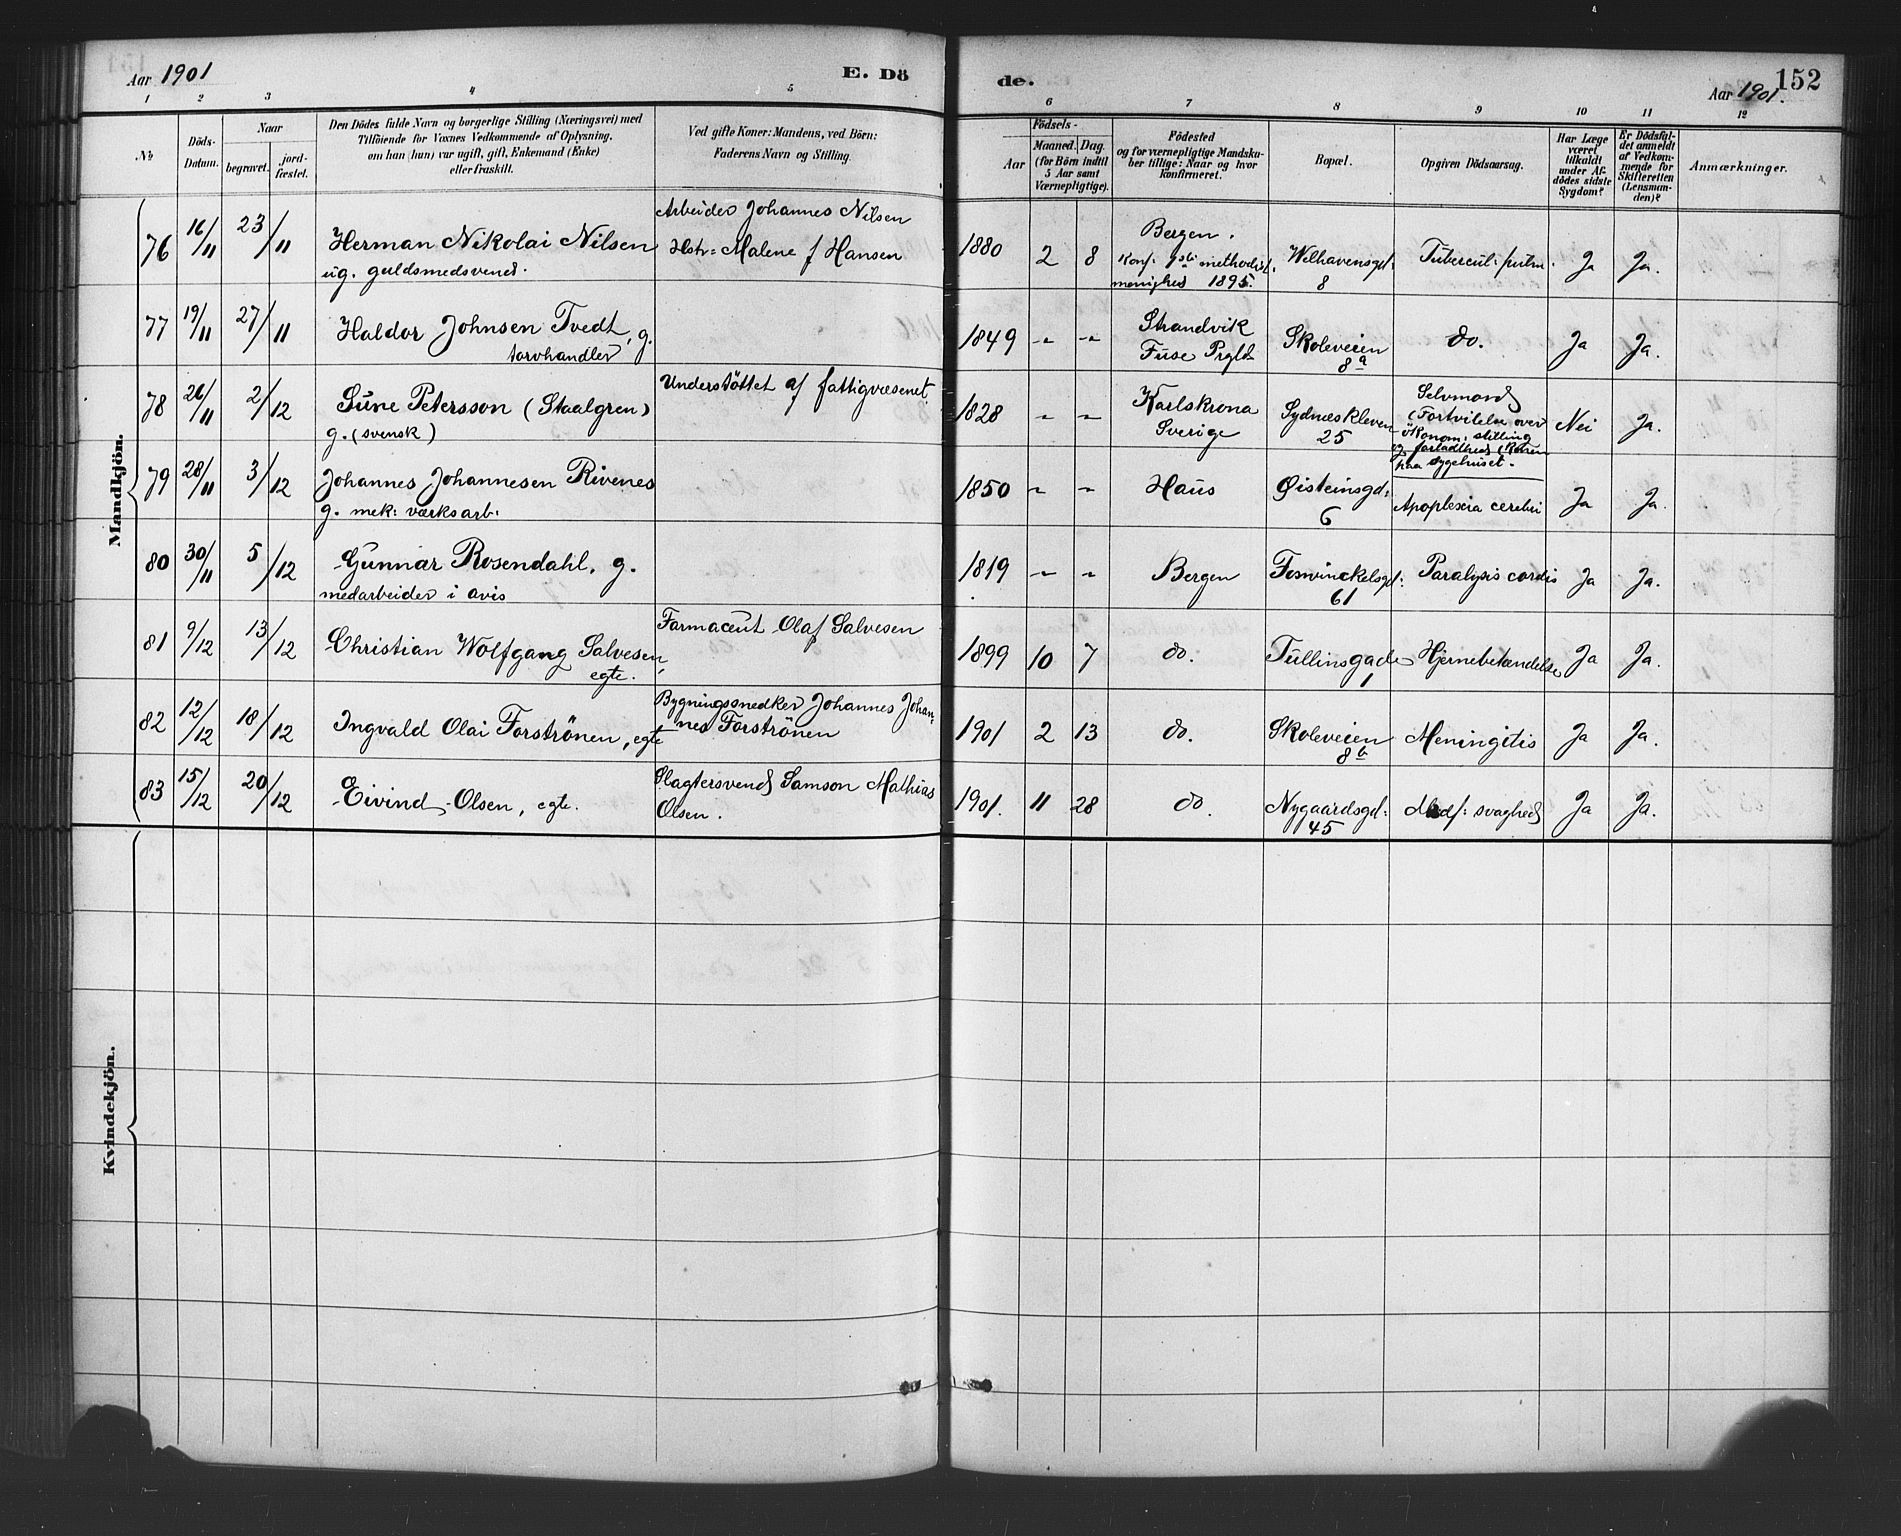 Aar 1901
E. Dö
de.
Aar 1901.
152
1 2 3 4 5 6 7 8 9 10 11 12
№
Döds-
Datum.
Naar
begravet.
jord-
fæstet.
Den Dödes fulde Navn og borgerlige Stilling (Næringsvei) med
Tilföiende for Voxnes Vedkommende af Oplysning,
om han (hun) var ugift, gift, Enkemand (Enke)
eller fraskilt.
Ved gifte Koner: Mandens, ved Börn:
Faderens Navn og Stilling.
Födsels-
Aar
Maaned.
Dag.
(for Börn indtil
5 Aar samt
Værnepligtige).
Födested
og for værnepligtige Mandska-
ber tillige: Naar og hvor
konfirmeret.
Bopæl.
Opgiven Dödsaarsag.
Har Læge
været
tilkaldt
under Af-
dödes sidste
Sygdom?
Er Dödsfal-
det anmeldt
af Vedkom-
mende for
Skifteretten
(Lensman-
den)?
Anmærkninger.
Mandkjön.
76 16/11 23/11 Herman Nikolai Nilsen
ug. guldsmedsvend.
Arbeider Johannes Nilsen
Hstr: Malene f Hansen
1880 2 8
Bergen.
Konf: 1ste methodist
menighed 1895.
Welhavensgd:
8
Tubercul: pulm.
Ja Ja.
77 19/11 27/11 Haldor Johnsen Tvedt, g.
torvhandler
1849 -"- -"-
Strandvik
Fuse Prgld
Skoleveien
8a
do.
Ja Ja.
78 26/11 2/12 Sune Petersson (Staalgren)
g. (svensk)
Understöttet af fattigvæsenet.
1828 -"- -"-
Karlskrona
Sverige
Sydneskleven
25
Selvmord
(Fortvilelse over
ökonom: stilling
og forladthed (Konen
paa sygehuset.
Nei Ja.
79 28/11 3/12 Johannes Johannesen Rivenes
g. mek: værksarb.
1850 -"- -"-
Haus
Øisteinsgd:
6
Apoplexia cerebri
Ja Ja.
80 30/11 5/12 Gunnar Rosendahl, g.
medarbeider i avis
1819 -"- -"-
Bergen
Foswinckelsgd:
61
Paralysis cordis
Ja Ja.
81 9/12 13/12 Christian Wolfgang Salvesen,
egte.
Farmaceut Olaf Salvesen
1899 10 7
do.
Tullinsgade
1
Hjernebetændelse
Ja Ja.
82 12/12 18/12 Ingvald Olai Forströnen, egte
Bygningssnedker Johannes Johan-
nes Forströnen
1901 2 13
do.
Skoleveien
8b
Meningitis
Ja Ja.
83 15/12 20/12 Eivind Olsen, egte.
Slagtersvend Samson Mathias
Olsen.
1901. 11 28
do.
Nygaardsgd:
45
Medf: svaghed
Ja Ja.
Kvindekjön.